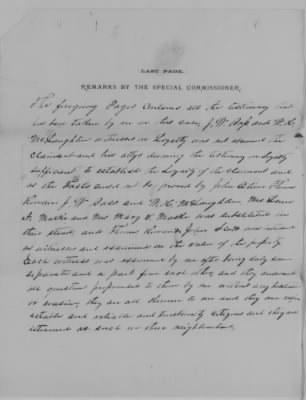 LAST PAGE.
REMARKS BY THE SPECIAL COMMISSIONER.
The foregoing Pages Contains all the testimony that
has been taken by me in this case, J. W. and W. H.
McLaughlin witnesses on Loyalty was not the
Claimant and his attys deeming the testimony on loyalty
sufficient to establish the Loyalty of the Claimant and
as the facts could not be proved by John
J. W. and W. H. McLaughlin, Mrs
and Mrs Mary was substituted in
their stead, and and John Scott
as witnesses and examined on the value of the property
Each witness was examined by me after being duly sworn
separate and a part from each other, and they answered
all questions propounded to them by me without any hesitation
or evasion, they are all known to me and they are
and reliable and trustworthy citizens and they are
esteemed as such in their neighborhood.